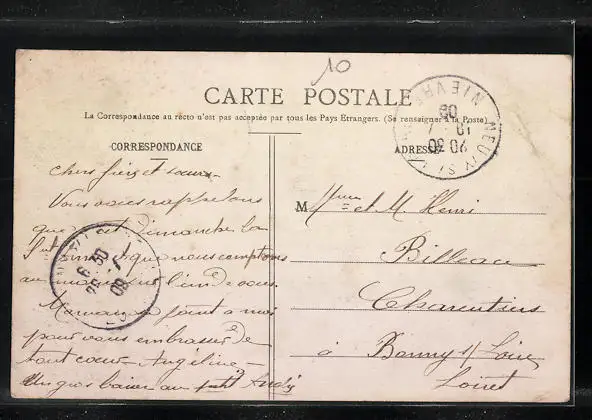 10
CARTE POSTALE
La Correspondance au recto n'est pas acceptée par tous les Pays Etrangers. (Se renseigner à la Poste)
CORRESPONDANCE
ADRESSE
Chers frère et sœur
Vous vous rappelons
que c'est Dimanche la
que nous comptons
au lieu de vous
Maman joint à moi
pour vous embrasser de
tout cœur Angéline
Un gros baiser au petit André
M Mme et M. Henri
Billeau
Charentiers
à Bonny s/ Loire
Loiret
NIEVRE
6 30
08